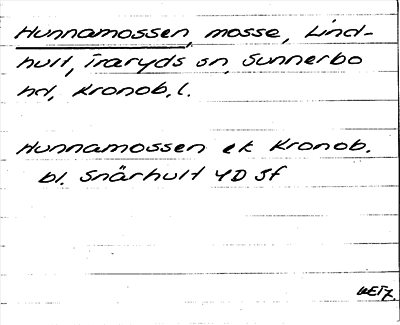 Hunnamossen, mosse, Lind-
hult, Traryds sn, Sunnerbo
hd, Kronob. l.
Hunnamossen ek Kronob.
bl. Snärhult 4D 5f